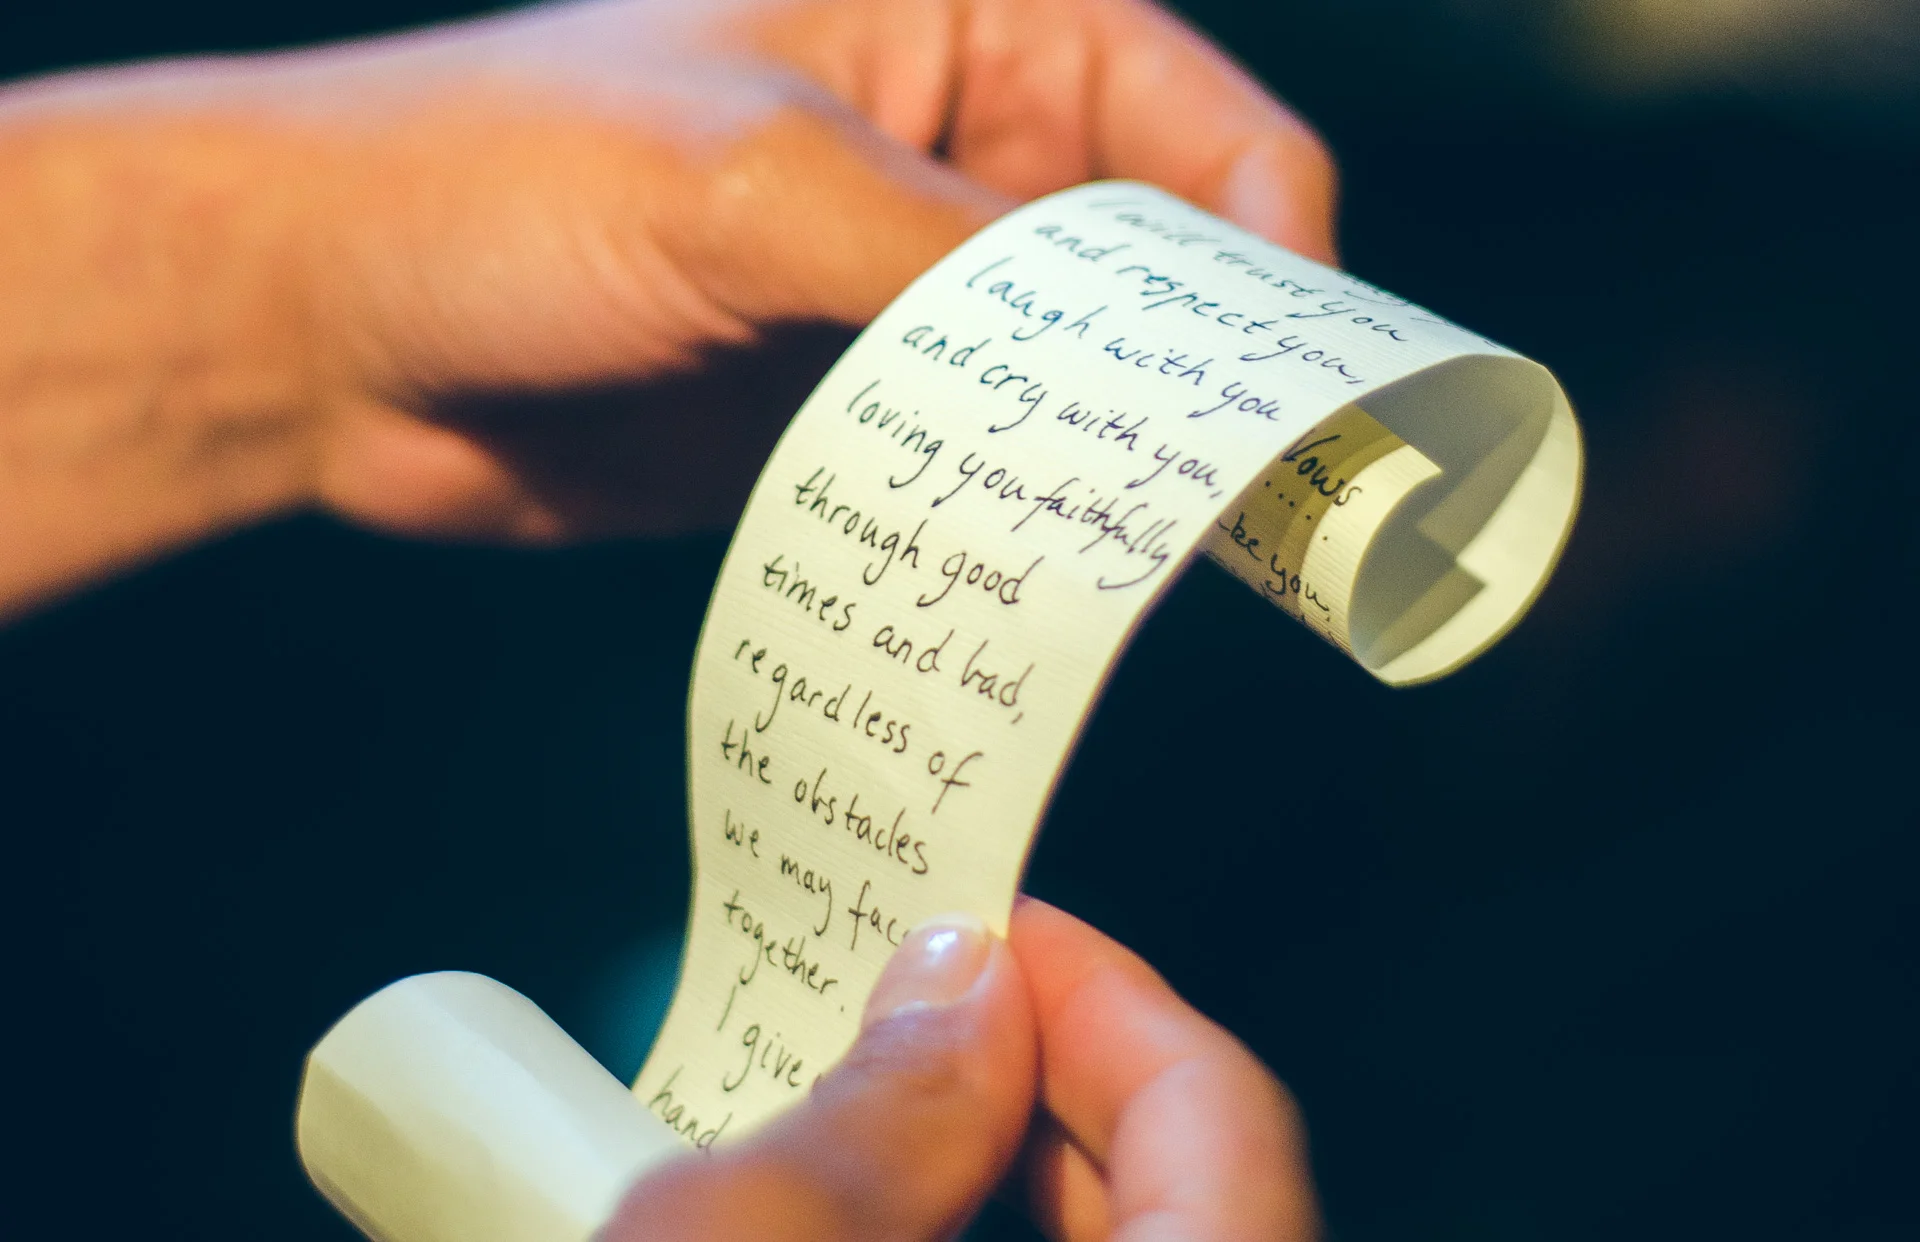 Vows
....
you,
I will trust you
and respect you,
laugh with you
and cry with you,
loving you faithfully
through good
times and bad,
regardless of
the obstacles
we may face
together.
I give
hand